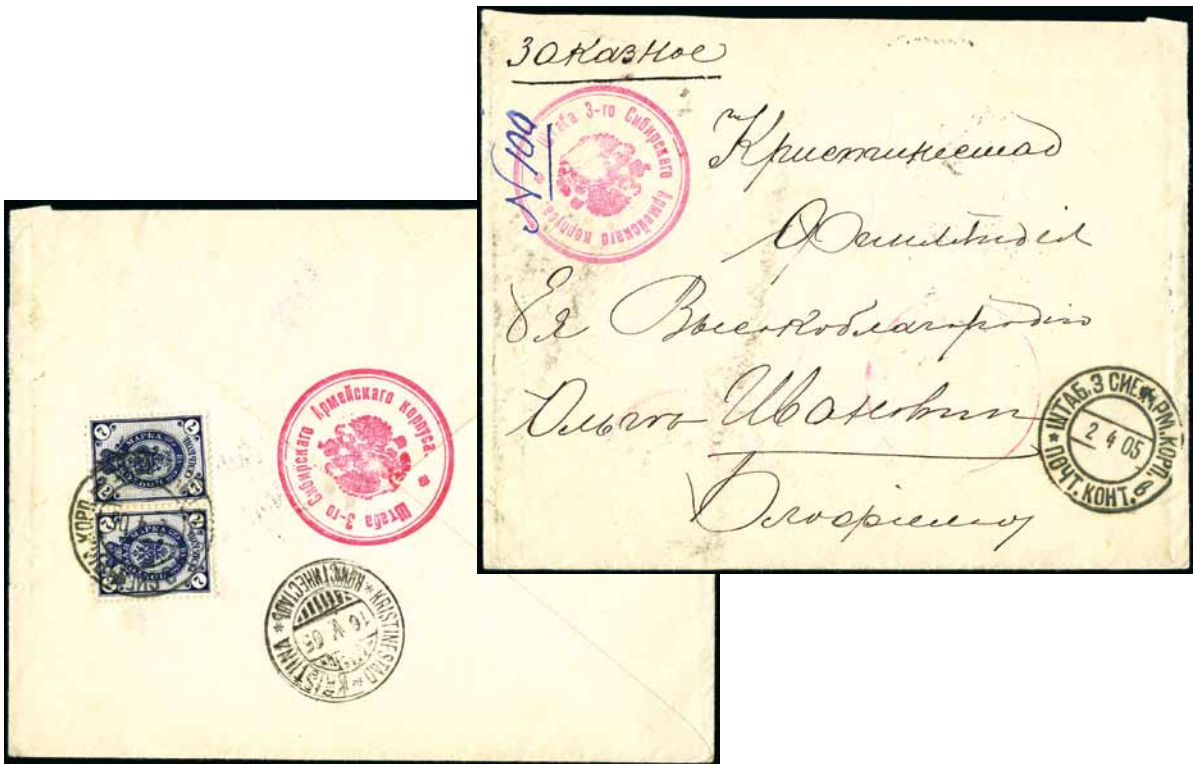 Заказное
N 100
Штаба 3-го Сибирскаго Армейскаго корпуса
Кристинестад
Финляндія
Ея Высокоблагородію
Ольге Ивановне
ШТАБ. 3 СИБ. АРМ. КОРП.
2 4 05
ПОЧТ. КОНТ.
Штаба 3-го Сибирскаго Армейскаго корпуса.
7 7
МАРКА
7 7
МАРКА
KRISTINESTAD * KRISTIINA * КРИСТИНЕСТАДЪ
16 V 05